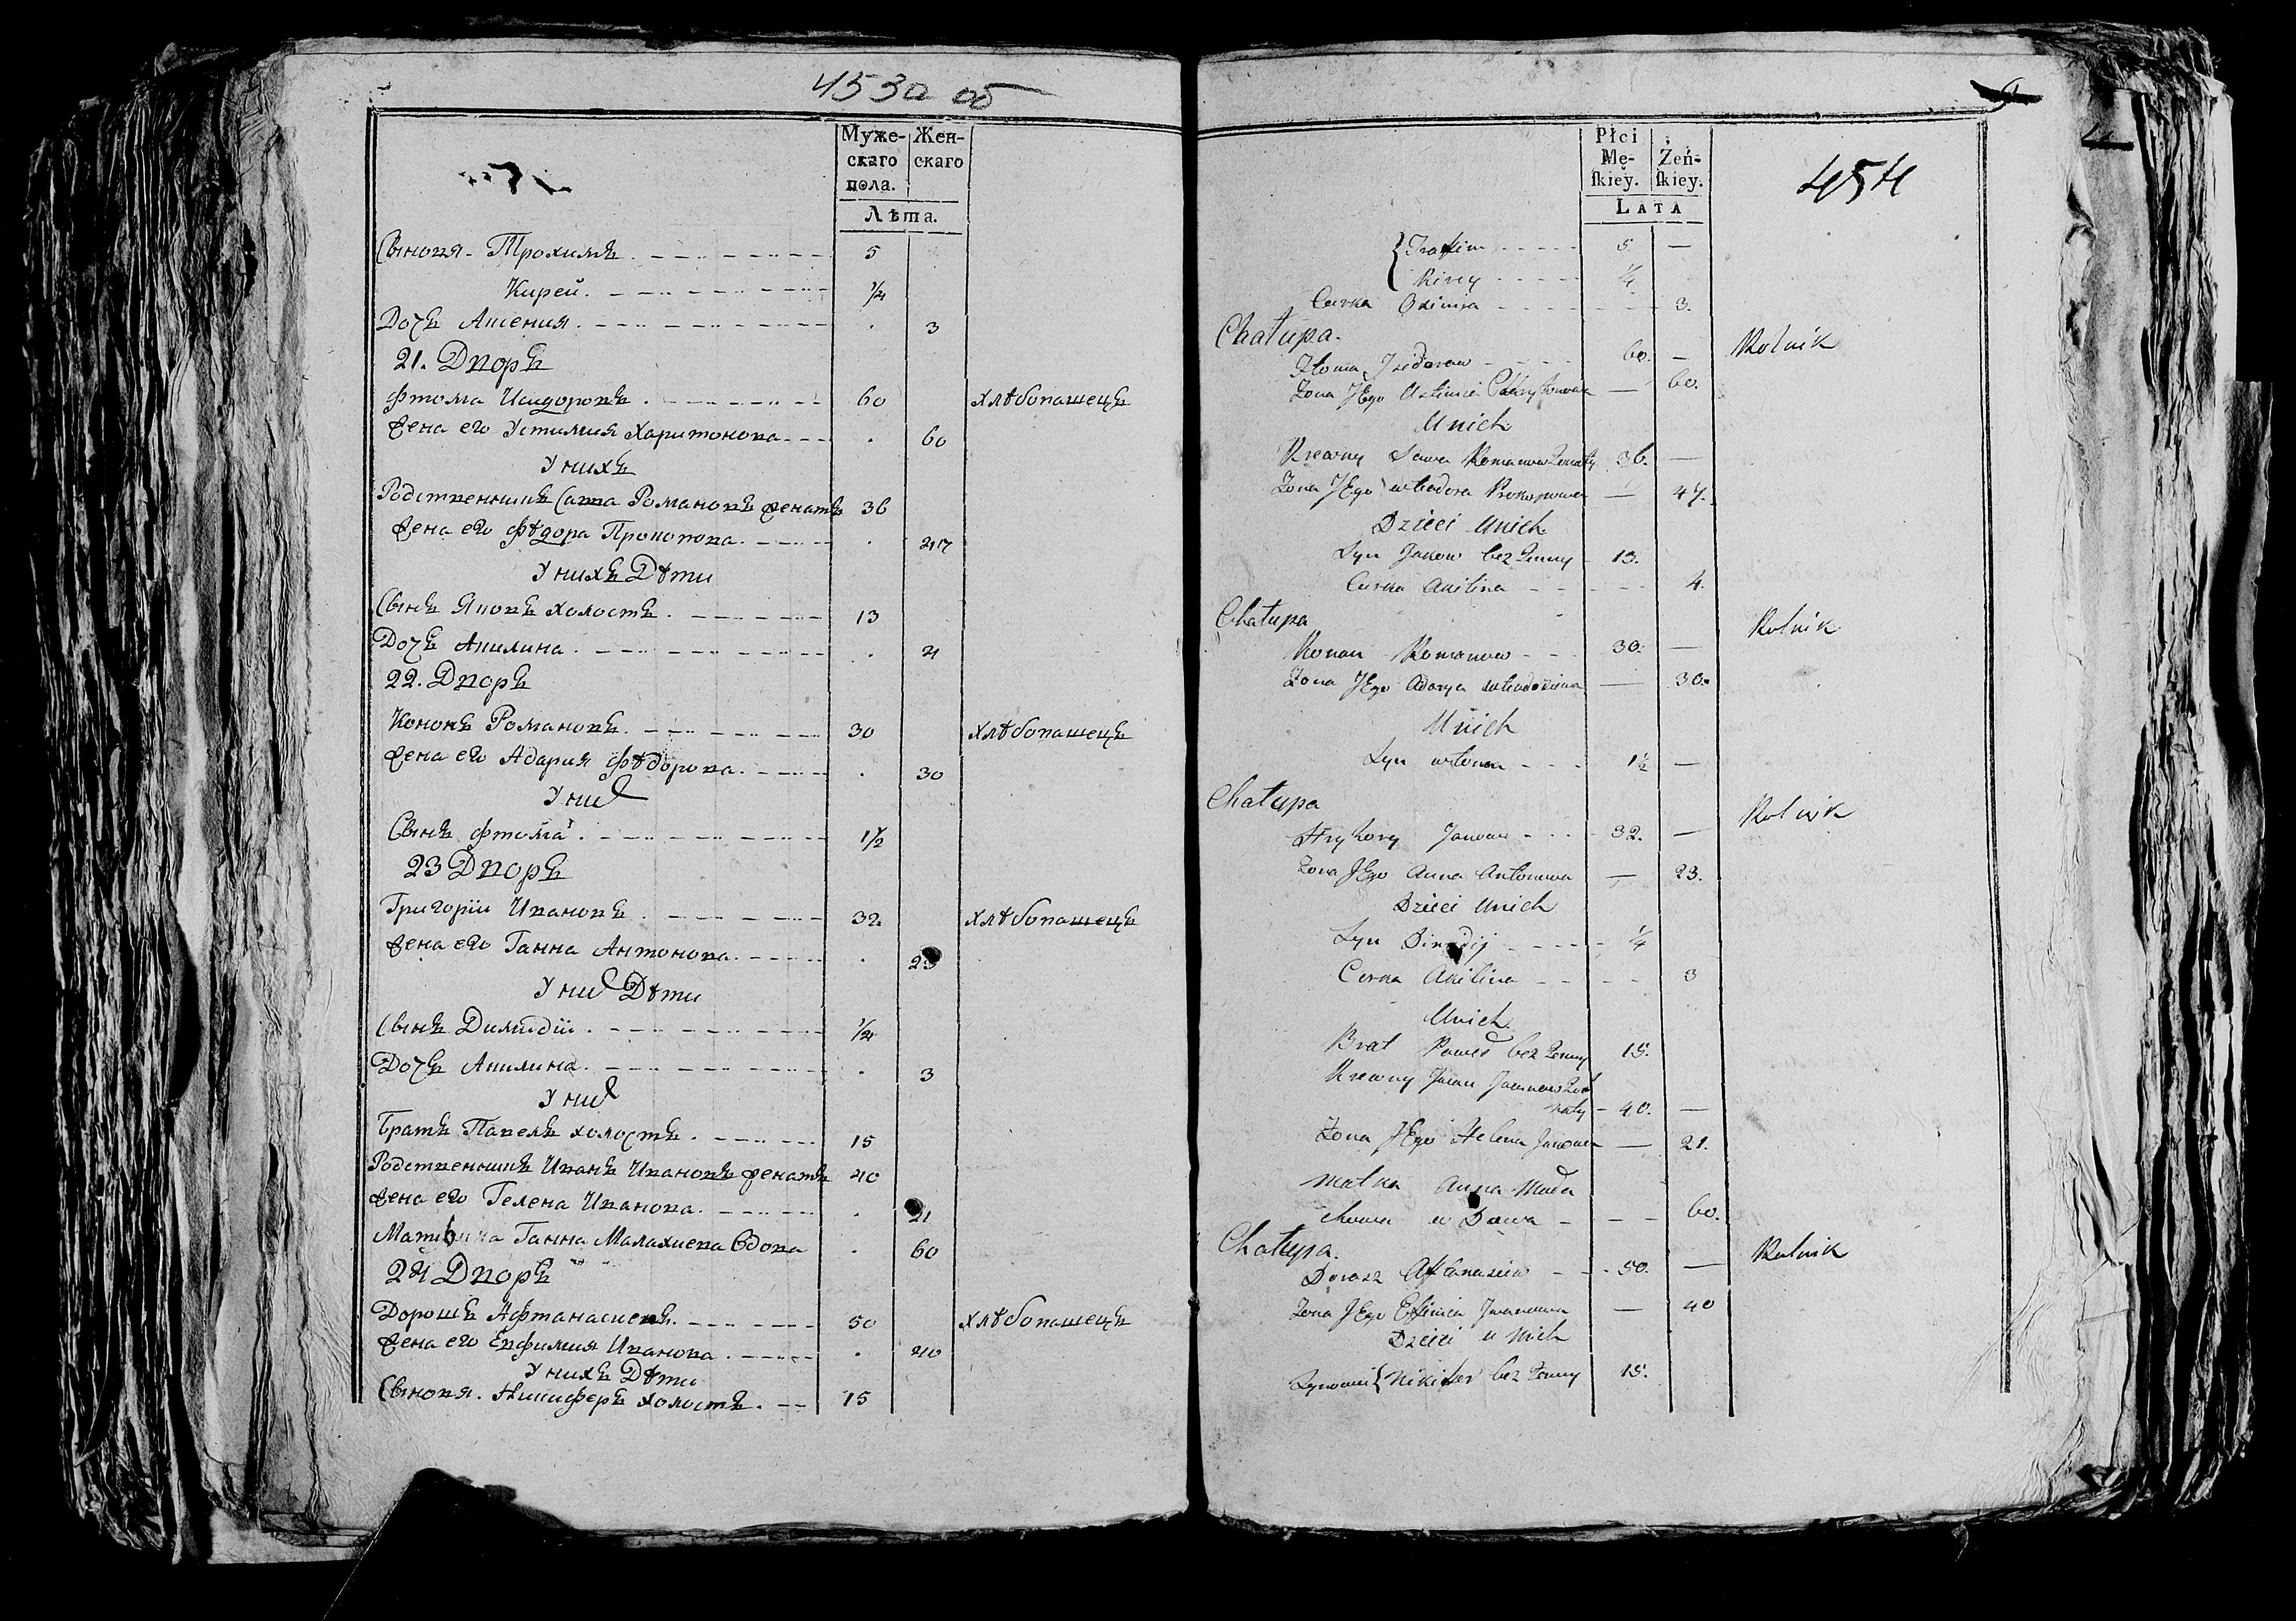 453а об
Муже-
скаго
пола.
Жен-
скаго
Лѣта.
Сыновя - Трохимъ 5
Кирей 1/4
Дочъ Аксения 3
21. Дворъ
Фтома Исидоровъ 60 хлѣбопашецъ
жена его Устимия Харитонова 60
У нихъ
Родственникъ Савва Романовъ женатъ 36
жена его Фѣдора Прокопова 47
У нихъ Дѣти
Сынъ Яковъ холостъ 13
Дочъ Акилина 4
22. Дворъ
Кононъ Романовъ 30 хлѣбопашецъ
жена его Адария Фѣдорова 30
У них
Сынъ Фтома 1 1/2
23 Дворъ
Григорій Ивановъ 32 хлѣбопашецъ
жена его Ганна Антонова 23
У них Дѣти
Сынъ Димидій 1/4
Дочъ Акилина 3
У них
Братъ Павелъ холостъ 15
Родственникъ Иванъ Ивановъ женатъ 40
жена его Гелена Иванова 21
Ганна Малахиева Вдова 60
24 Дворъ
Дорошъ Афтанасиевъ 50 хлѣбопашецъ
жена его Евфимия Иванова 40
У нихъ Дѣти
Сыновя. Никиферъ холостъ. 15
Płci
Mę-
ſkiey.
Żeń-
ſkiey.
LATA
454
Trofim 5 —
Kirey 1/4
Curka Oximia 3.
Chałupa.
Ftoma Izidorow 60. — Rolnik
Żona JEgo Ustimia — 60.
Unich
Krewny Sawa Romanow Żonaty 36. —
Żona JEgo Prokopowa — 47.
Dzieci Unich
Syn Jakow bez Żenny 13.
Curka Akilina 4.
Chałupa
Konan Romanow 30. — Rolnik
Żona JEgo Adarya — 30.
Unich
Syn 1 1/2 —
Chałupa
Hryhory Janow 32. — Rolnik
Żona JEgo Anna Antonowa — 23.
Dzieci Unich
Syn 1/4
Corka Akilina 3
Unich
Brat Paweł bez Żenny 15.
Krewny Jwan Jwanow Żo-
naty - 40. —
Żona JEgo Helena Janowa — 21.
Matka Anna Mała
chowa w Dowa 60.
Chałupa.
Dorosz Aftanasiew 50. — Rolnik
Żona JEgo Efimia Jwanowa — 40
Dzieci u Nich
Synowie { Nikifer bez Żenny 15.